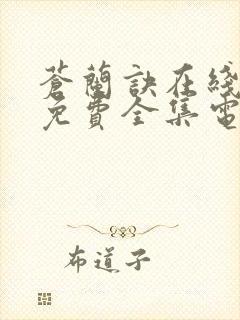 蒼蘭訣在綫
免費全集電
布道子